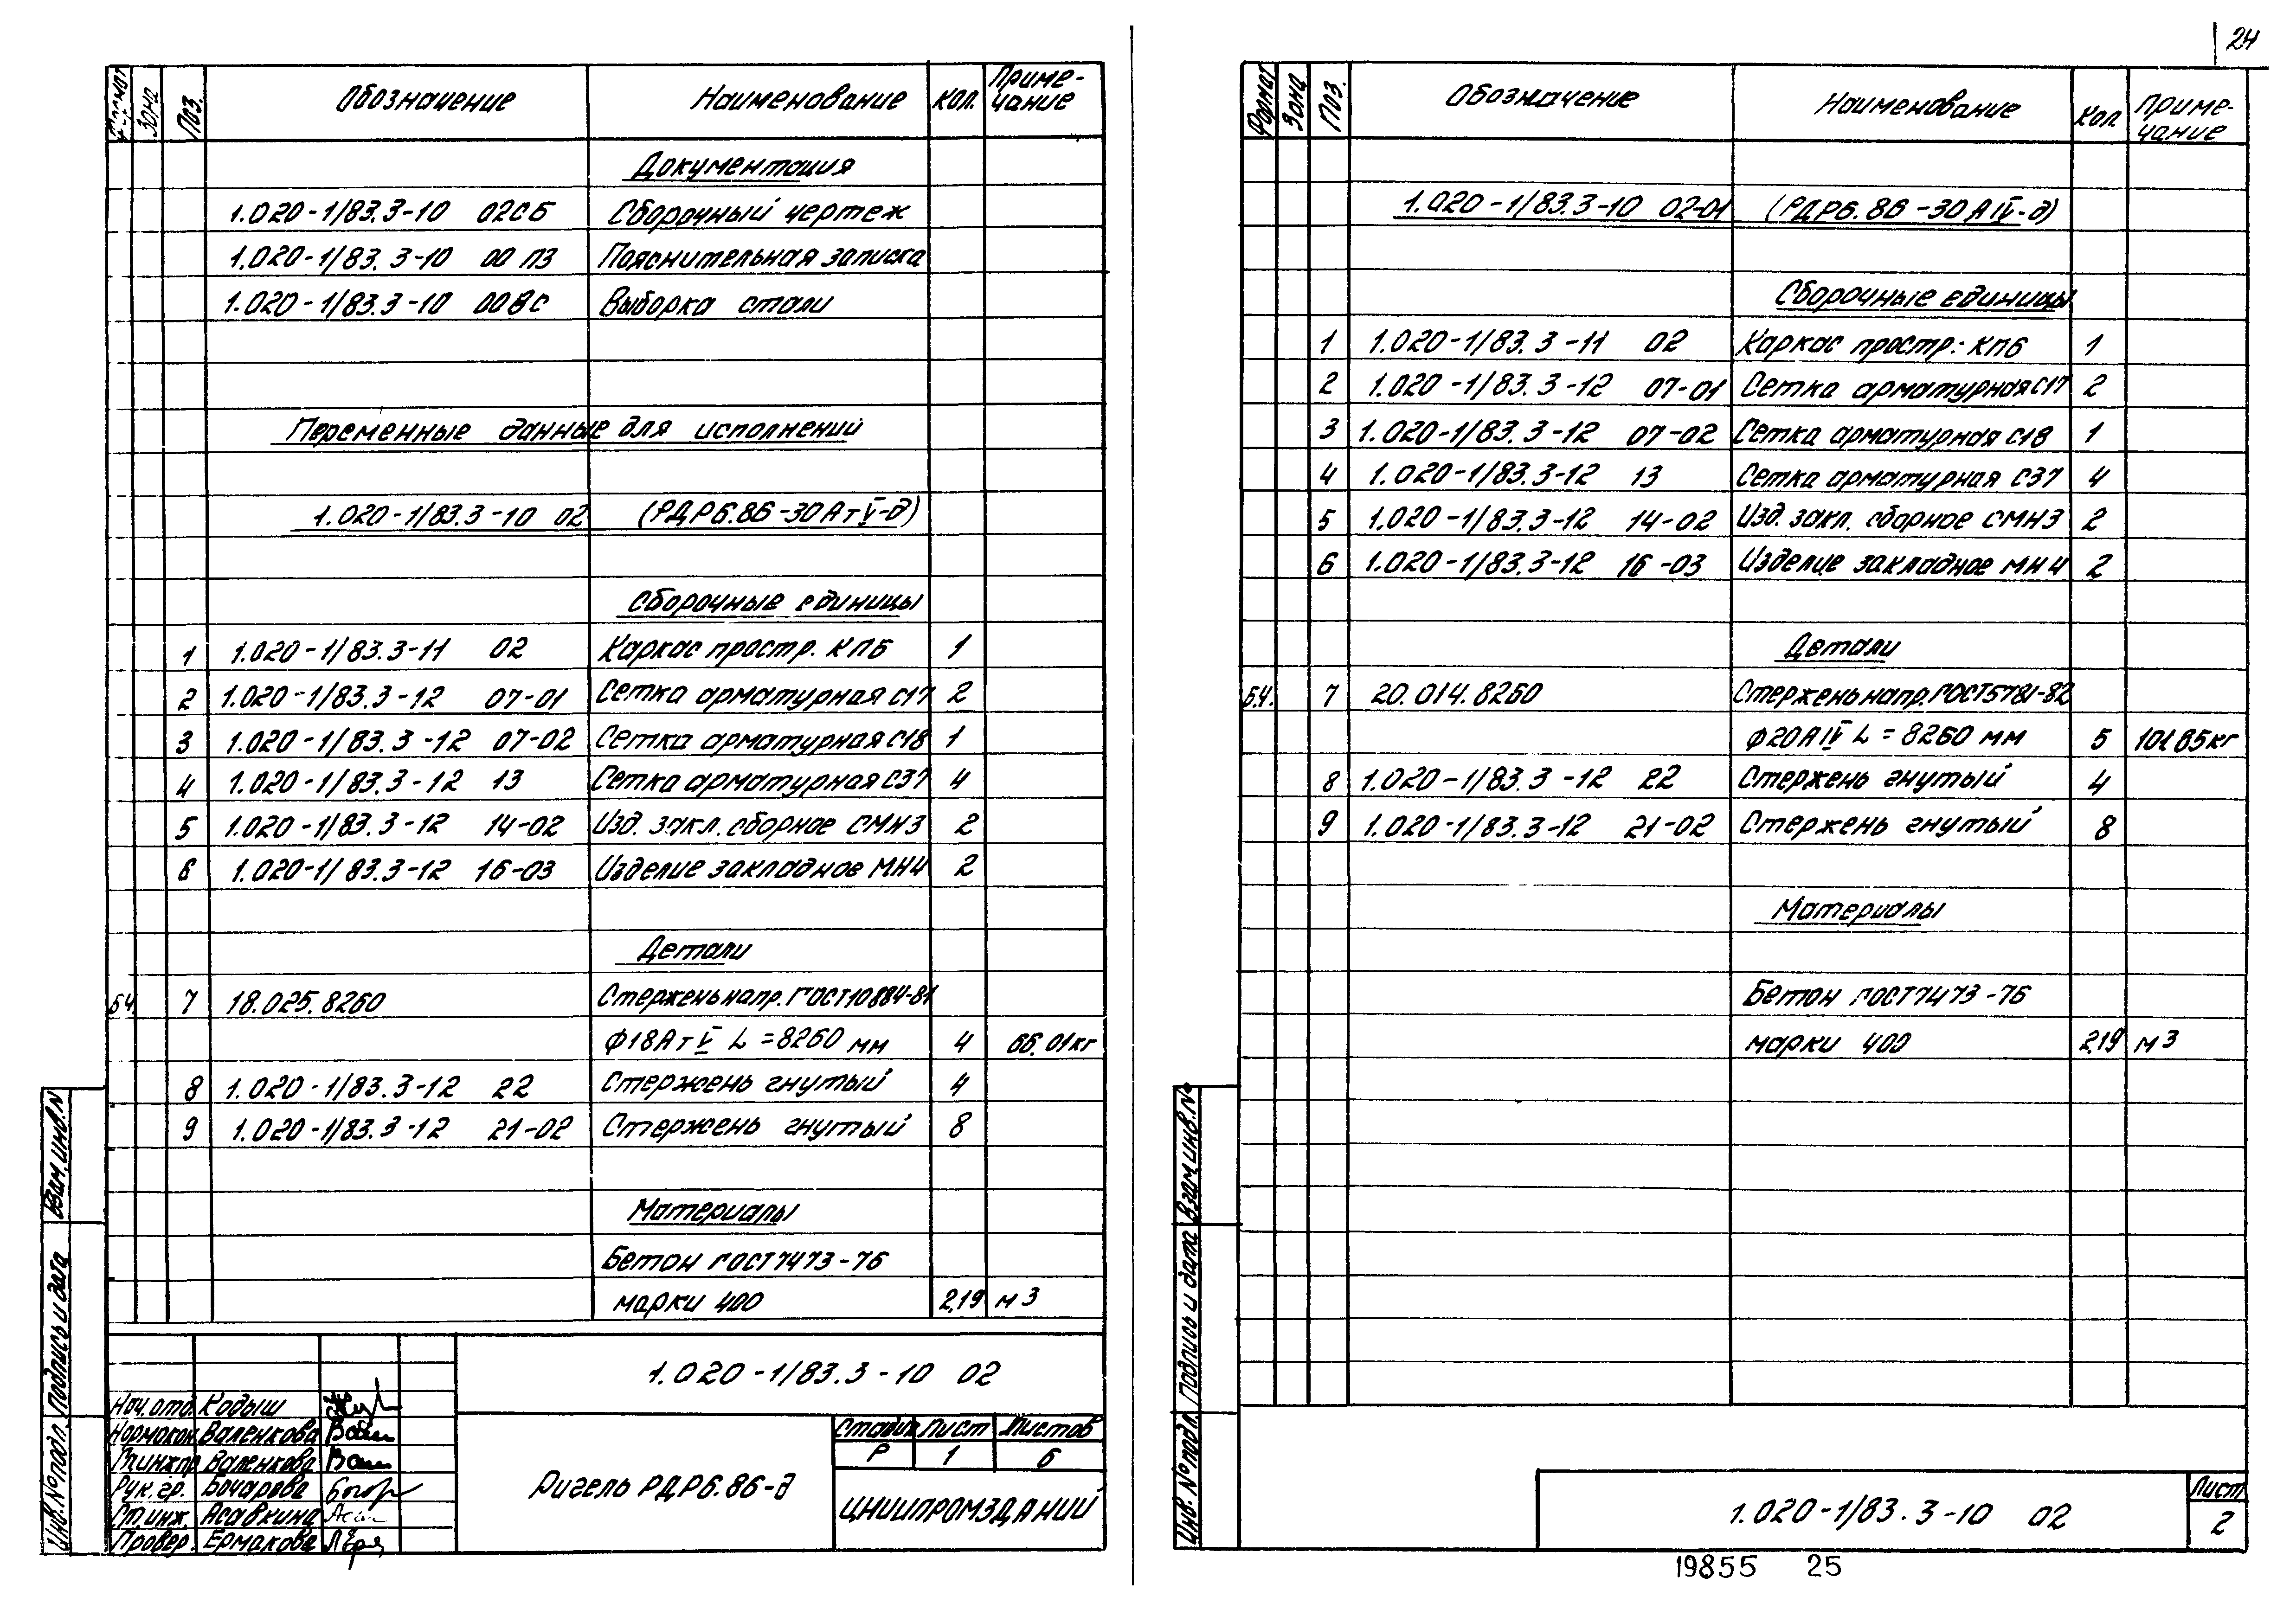 24
Формат Зона Поз. Обозначение Наименование Кол. Приме-
чание
Документация
1.020-1/83.3-10 02СБ Сборочный чертеж
1.020-1/83.3-10 00 ПЗ Пояснительная записка
1.020-1/83.3-10 00ВС Выборка стали
Переменные данные для исполнений
1.020-1/83.3-10 02 (РДР6.86-30АтV-д)
Сборочные единицы
1 1.020-1/83.3-11 02 Каркас простр. КП6 1
2 1.020-1/83.3-12 07-01 Сетка арматурная С17 2
3 1.020-1/83.3-12 07-02 Сетка арматурная С18 1
4 1.020-1/83.3-12 13 Сетка арматурная С37 4
5 1.020-1/83.3-12 14-02 Изд. закл. сборное СМН3 2
6 1.020-1/83.3-12 16-03 Изделие закладное МН4 2
Детали
БЧ. 7 18.025.8260 Стержень напр. ГОСТ10884-81
Ф18АтV L=8260 мм 4 66.01кг
8 1.020-1/83.3-12 22 Стержень гнутый 4
9 1.020-1/83.3-12 21-02 Стержень гнутый 8
Материалы
Бетон ГОСТ7473-76
марки 400 2,19 м3
Взам. инв. N
Подпись и дата
Инв. № подл.
1.020-1/83.3-10 02
Нач. отд. Кодыш
Нормокон Валенкова
Гл.инж.пр Валенкова
Рук. гр. Бочарова
Ст. инж. Асавкина
Провер. Ермакова
Ригель РДР6.86-д
Стадия Лист Листов
Р 1 6
ЦНИИПРОМЗДАНИЙ
Формат Зона Поз. Обозначение Наименование Кол Приме-
чание
1.020-1/83.3-10 02-01 (РДР6.86-30АIV-д)
Сборочные единицы
1 1.020-1/83.3-11 02 Каркас простр. КП6 1
2 1.020-1/83.3-12 07-01 Сетка арматурная С17 2
3 1.020-1/83.3-12 07-02 Сетка арматурная С18 1
4 1.020-1/83.3-12 13 Сетка арматурная С37 4
5 1.020-1/83.3-12 14-02 Изд. закл. сборное СМН3 2
6 1.020-1/83.3-12 16-03 Изделие закладное МН4 2
Детали
Б.Ч. 7 20.014.8260 Стержень напр. ГОСТ5781-82
Ф20АIV L=8260 мм 5
8 1.020-1/83.3-12 22 Стержень гнутый 4
9 1.020-1/83.3-12 21-02 Стержень гнутый 8
Материалы
Бетон ГОСТ7473-76
марки 400 2,19 м3
Взам инв. №
Подпись и дата
Инв. № подл.
1.020-1/83.3-10 02
Лист
2
19855 25